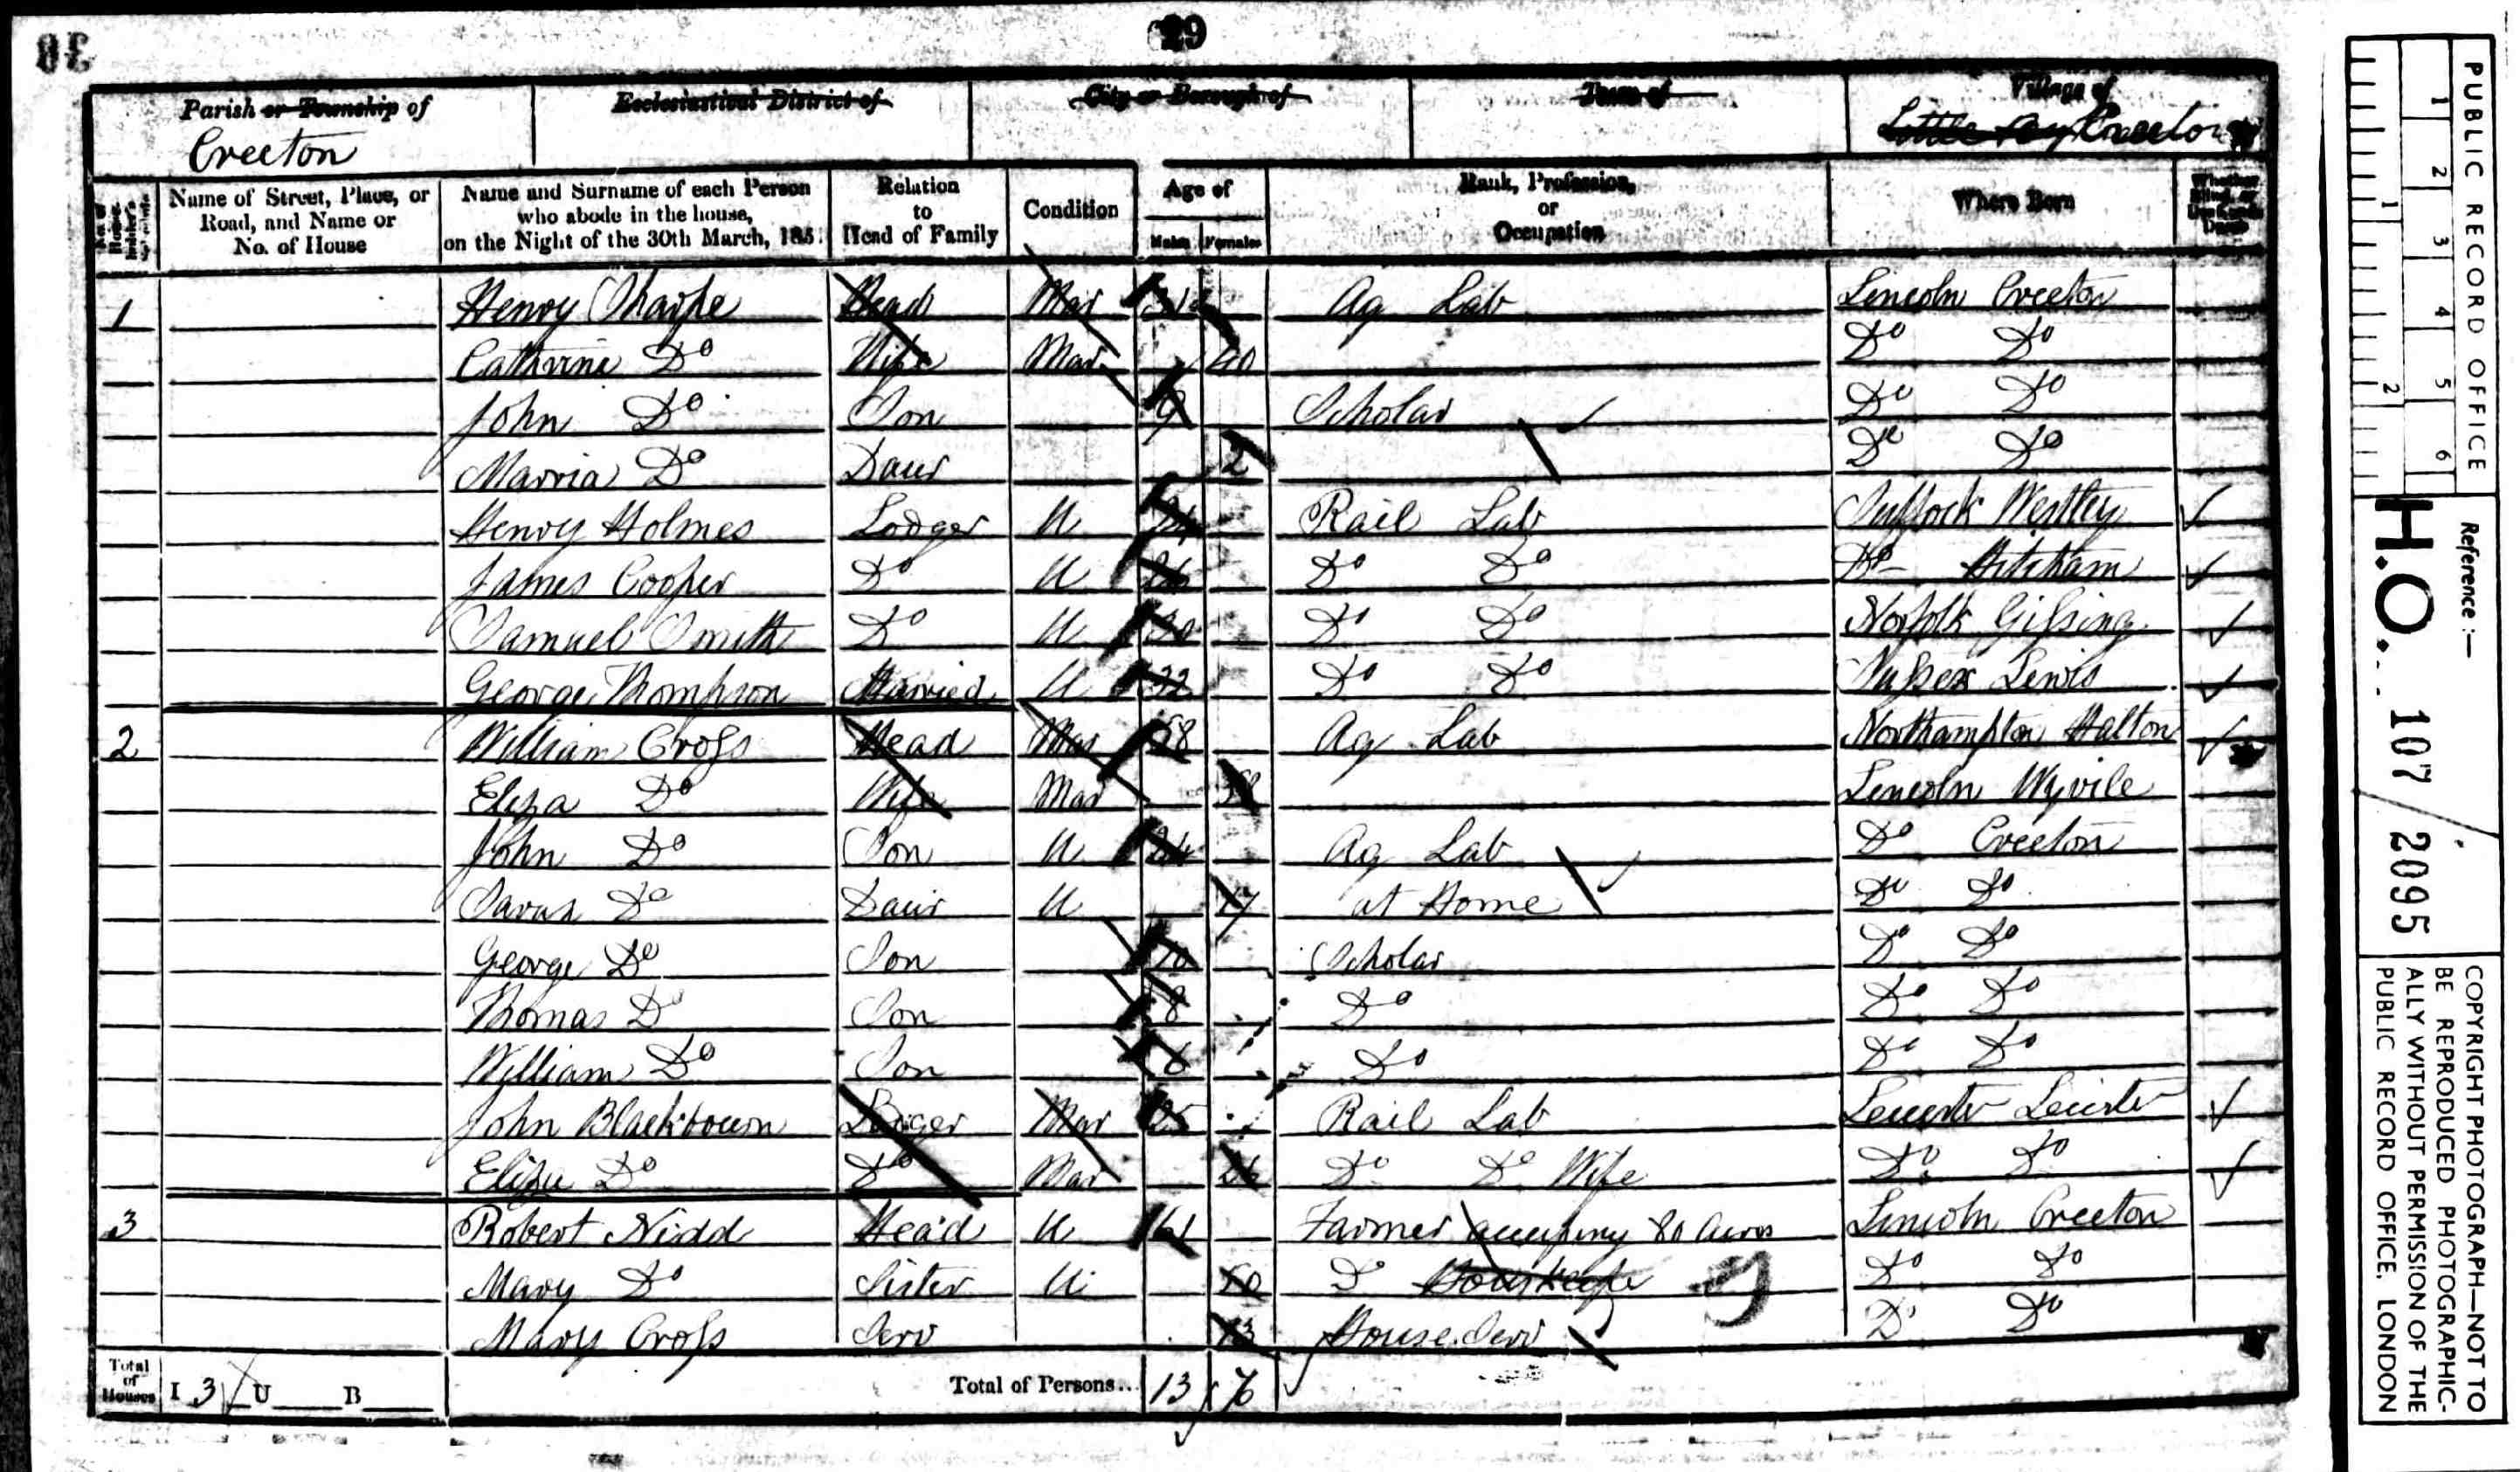 29
Parish or Township of
Creeton
Ecclesiastical District of
City or Borough of
Town of
Village of
Little Creeton
Name of Street, Place, or Road, and Name or No. of House
Name and Surname of each Person who abode in the house, on the Night of the 30th March, 185
Relation to Head of Family
Condition
Age of
Males Females
Rank, Profession, or Occupation
Where Born
Whether Blind, or Deaf-and-Dumb
1 Henry Sharpe Head Mar Ag Lab Lincoln Creeton
Cathrine Do Wife Mar 40 Do Do
John Do Son 9 Scholar Do Do
Marria Do Daur 2 Do Do
Henry Holmes Lodger U Rail Lab Suffock Westley
James Cooper Do U 26 Do Do Do Hitcham
Samuel Smith Do U 30 Do Do Norfolk Gissing
George Thompson Married U 32 Do Do Sussex Lewis
2 William Cross Head Mar 58 Ag Lab Northampton Halton
Eliza Do Wife Mar Lincoln Wyvile
John Do Son U 24 Ag Lab Do Creeton
Sarah Do Daur U 17 at Home Do Do
George Do Son 10 Scholar Do Do
Thomas Do Son 8 Do Do Do
William Do Son 6 Do Do Do
John Blackbourn Lodger Mar 25 Rail Lab Leicester Leicster
Eliza Do Do Mar 26 Do Do Wife Do Do
3 Robert Nidd Head U 61 Farmer occupiny 80 Acres Lincoln Creeton
Mary Do Sister U 50 Do Houskeepe Do Do
Mary Cross Serv 13 House Serv Do Do
Total of Houses I 3 U B Total of Persons... 13 7
PUBLIC RECORD OFFICE
1 2 3 4 5 6
1 2
Reference:—
H.O. 107 / 2095
COPYRIGHT PHOTOGRAPH—NOT TO
BE REPRODUCED PHOTOGRAPHIC-
ALLY WITHOUT PERMISSION OF THE
PUBLIC RECORD OFFICE, LONDON